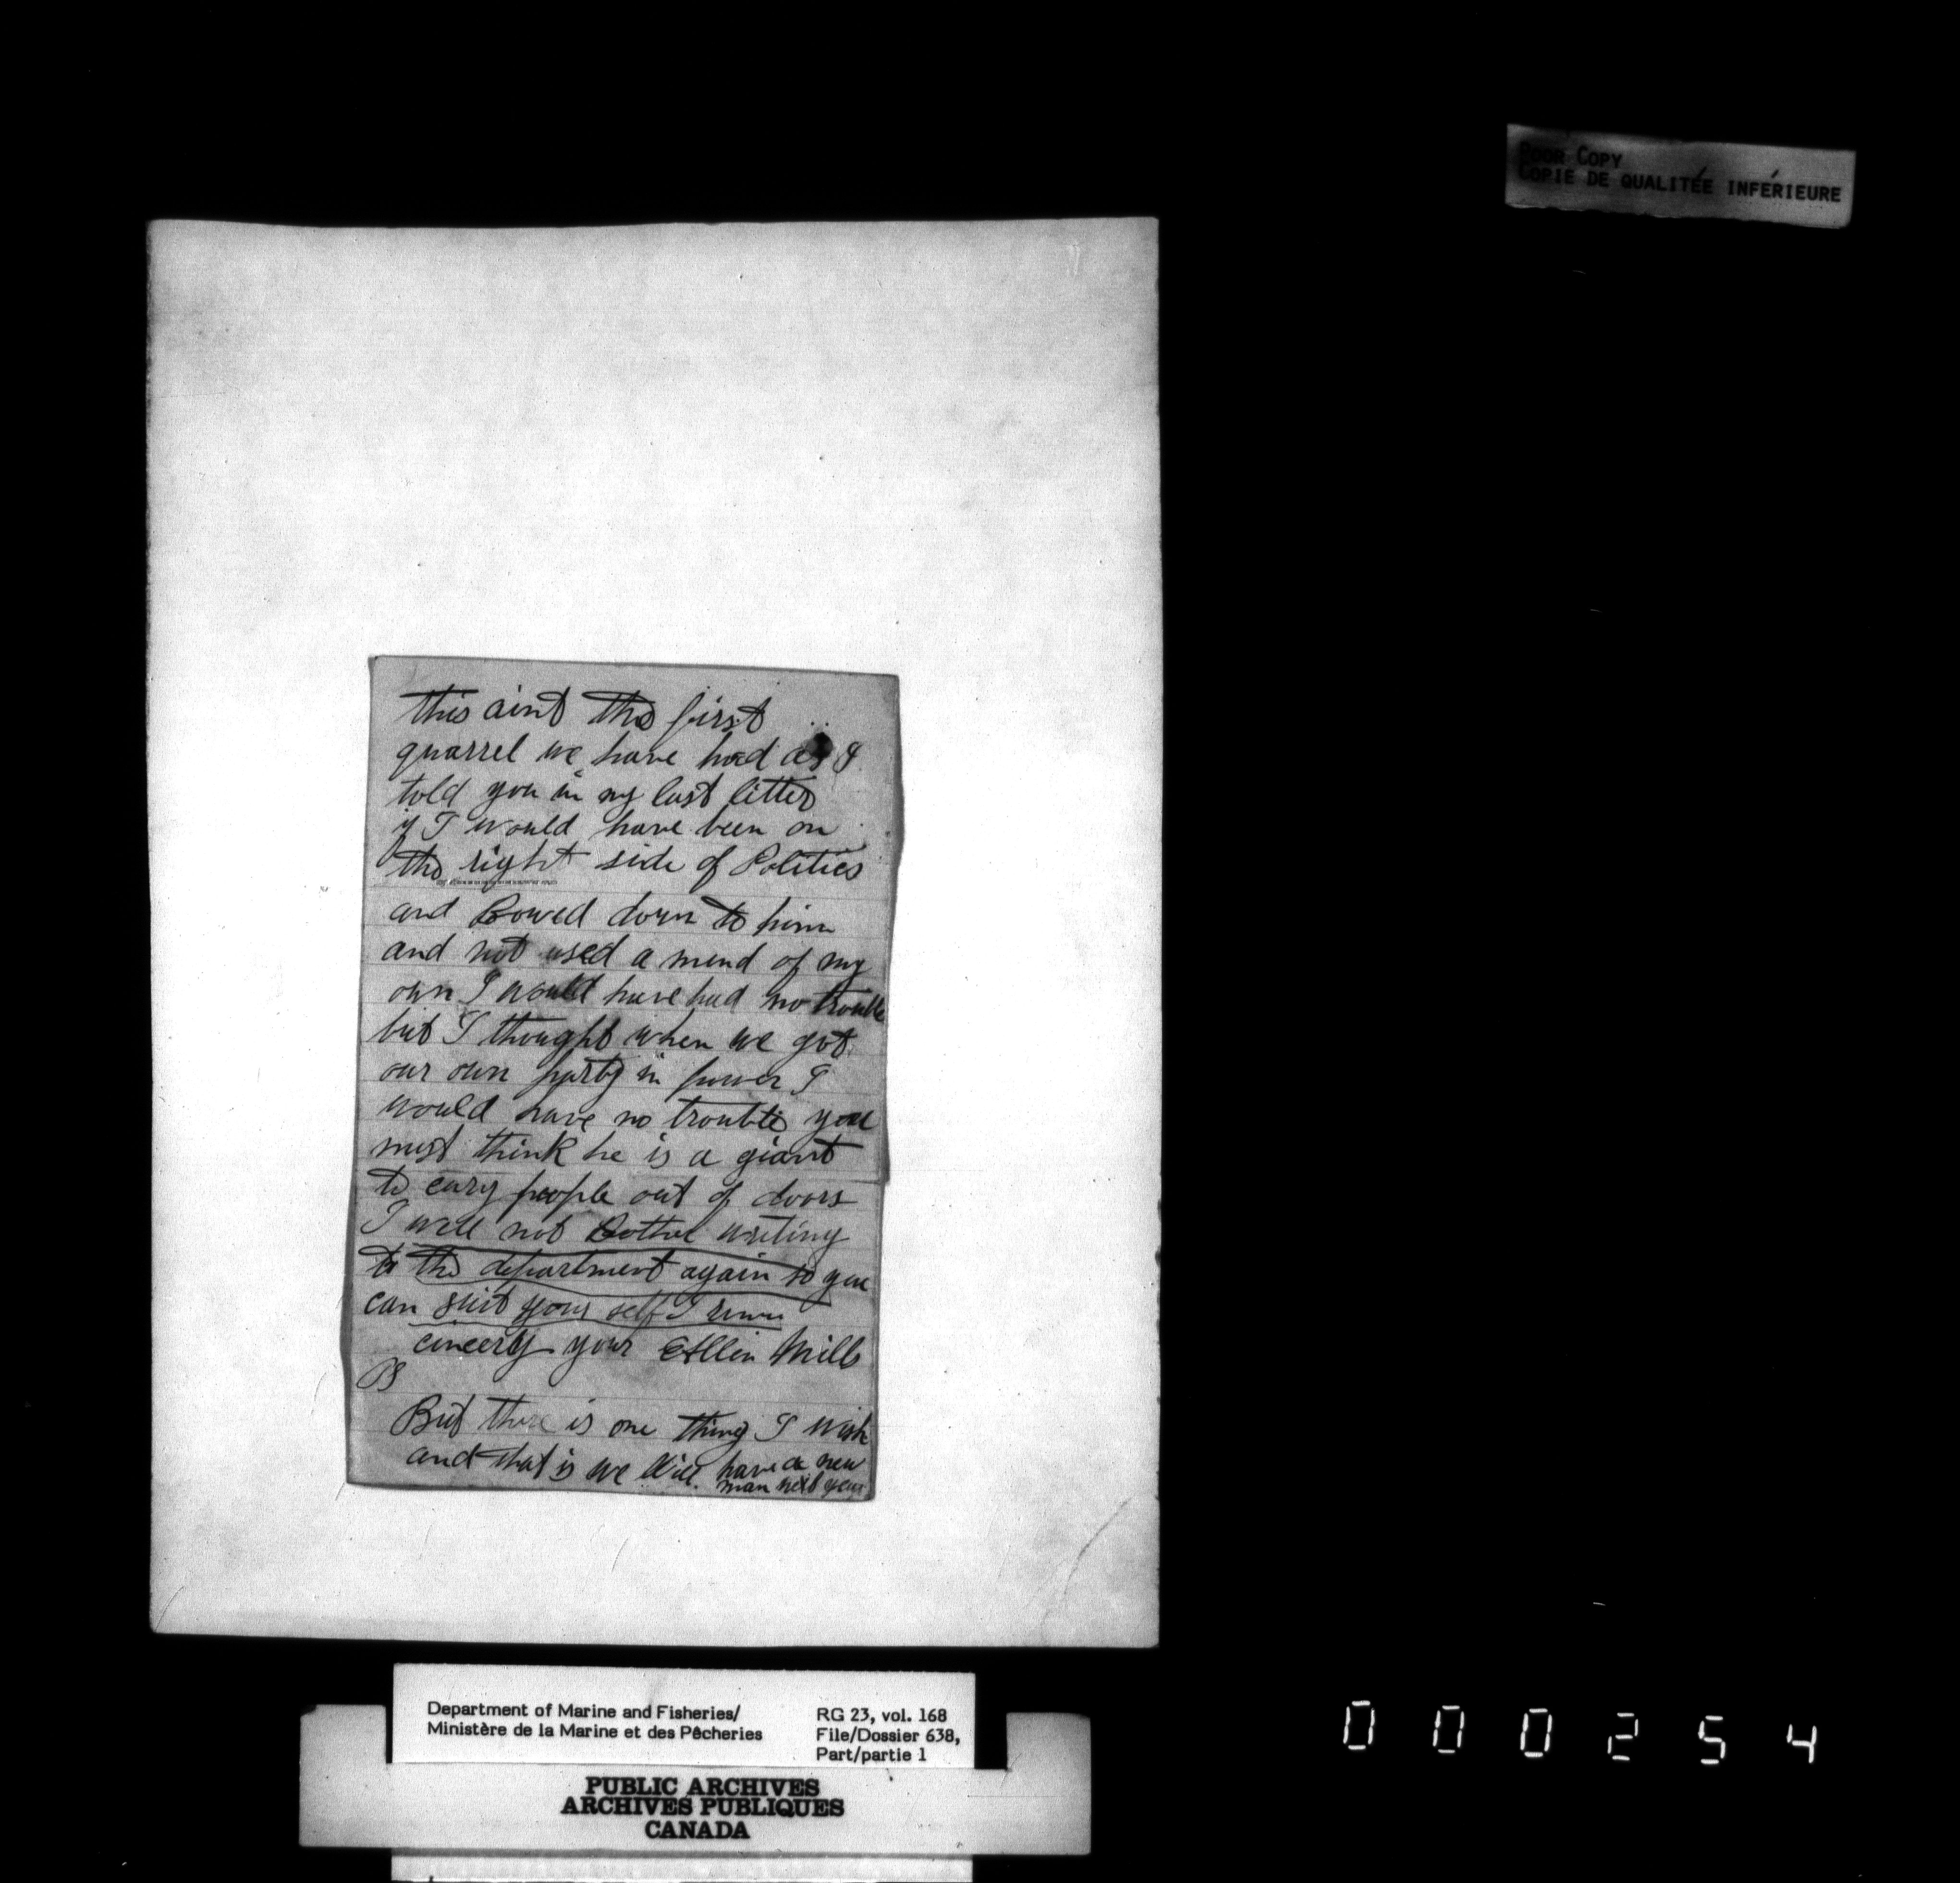 POOR COPY
COPIE DE QUALITÉE INFÉRIEURE
this aint the first
quarrel we have had as I
told you in my last letter
if I would have been on
the right side of Politics
and Bowed down to him
and not used a mind of my
own I would have had no trouble
but I thought when we got
our own party in power I
would have no trouble you
must think he is a giant
to cary people out of doors
I will not Bother writing
to the department again so you
can suit your self I
cincerly your Allen Mills
PS
But there is one thing I wish
and that is we will have a new
man next year
Department of Marine and Fisheries/
Ministère de la Marine et des Pêcheries
RG 23, vol. 168
File/Dossier 638,
Part/partie 1
PUBLIC ARCHIVES
ARCHIVES PUBLIQUES
CANADA
000254